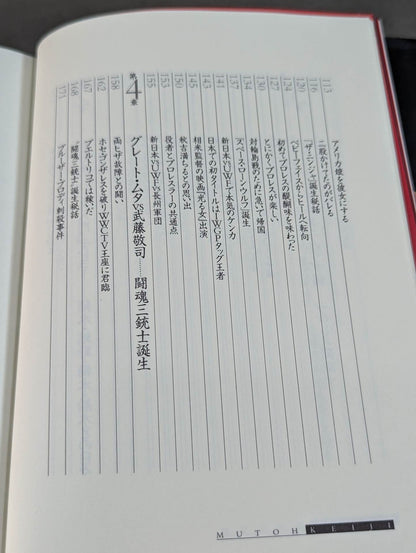 アメリカ娘を彼女にする 113
二股かけてたのがバレる 116
「ザ・ニンジャ」誕生秘話 120
ベビーフェイスからヒールへ転向 124
初めてプロレスの醍醐味を味わった
とにかくプロレスが楽しい 132
対輪島戦のために急いで帰国 134
スペース・ローンウルフ誕生 137
新日本VSUWFで本気のケンカ 141
日本での初タイトルはIWGPタッグ王者 143
相米監督の映画『光る女』出演 145
秋吉満ちるとの思い出 150
役者とプロレスラーの共通点 153
新日本VSUWFVS長州軍団 155
第4章 グレート・ムタVS武藤敬司……闘魂三銃士誕生
両ヒザ故障との闘い 158
ホセ・ゴンザレスを破りWWCTV王座に君臨 162
プエルトリコでは稼いだ 167
闘魂三銃士誕生秘話 168
ブルーザー・ブロディ刺殺事件 171
MUTOH KEIJI